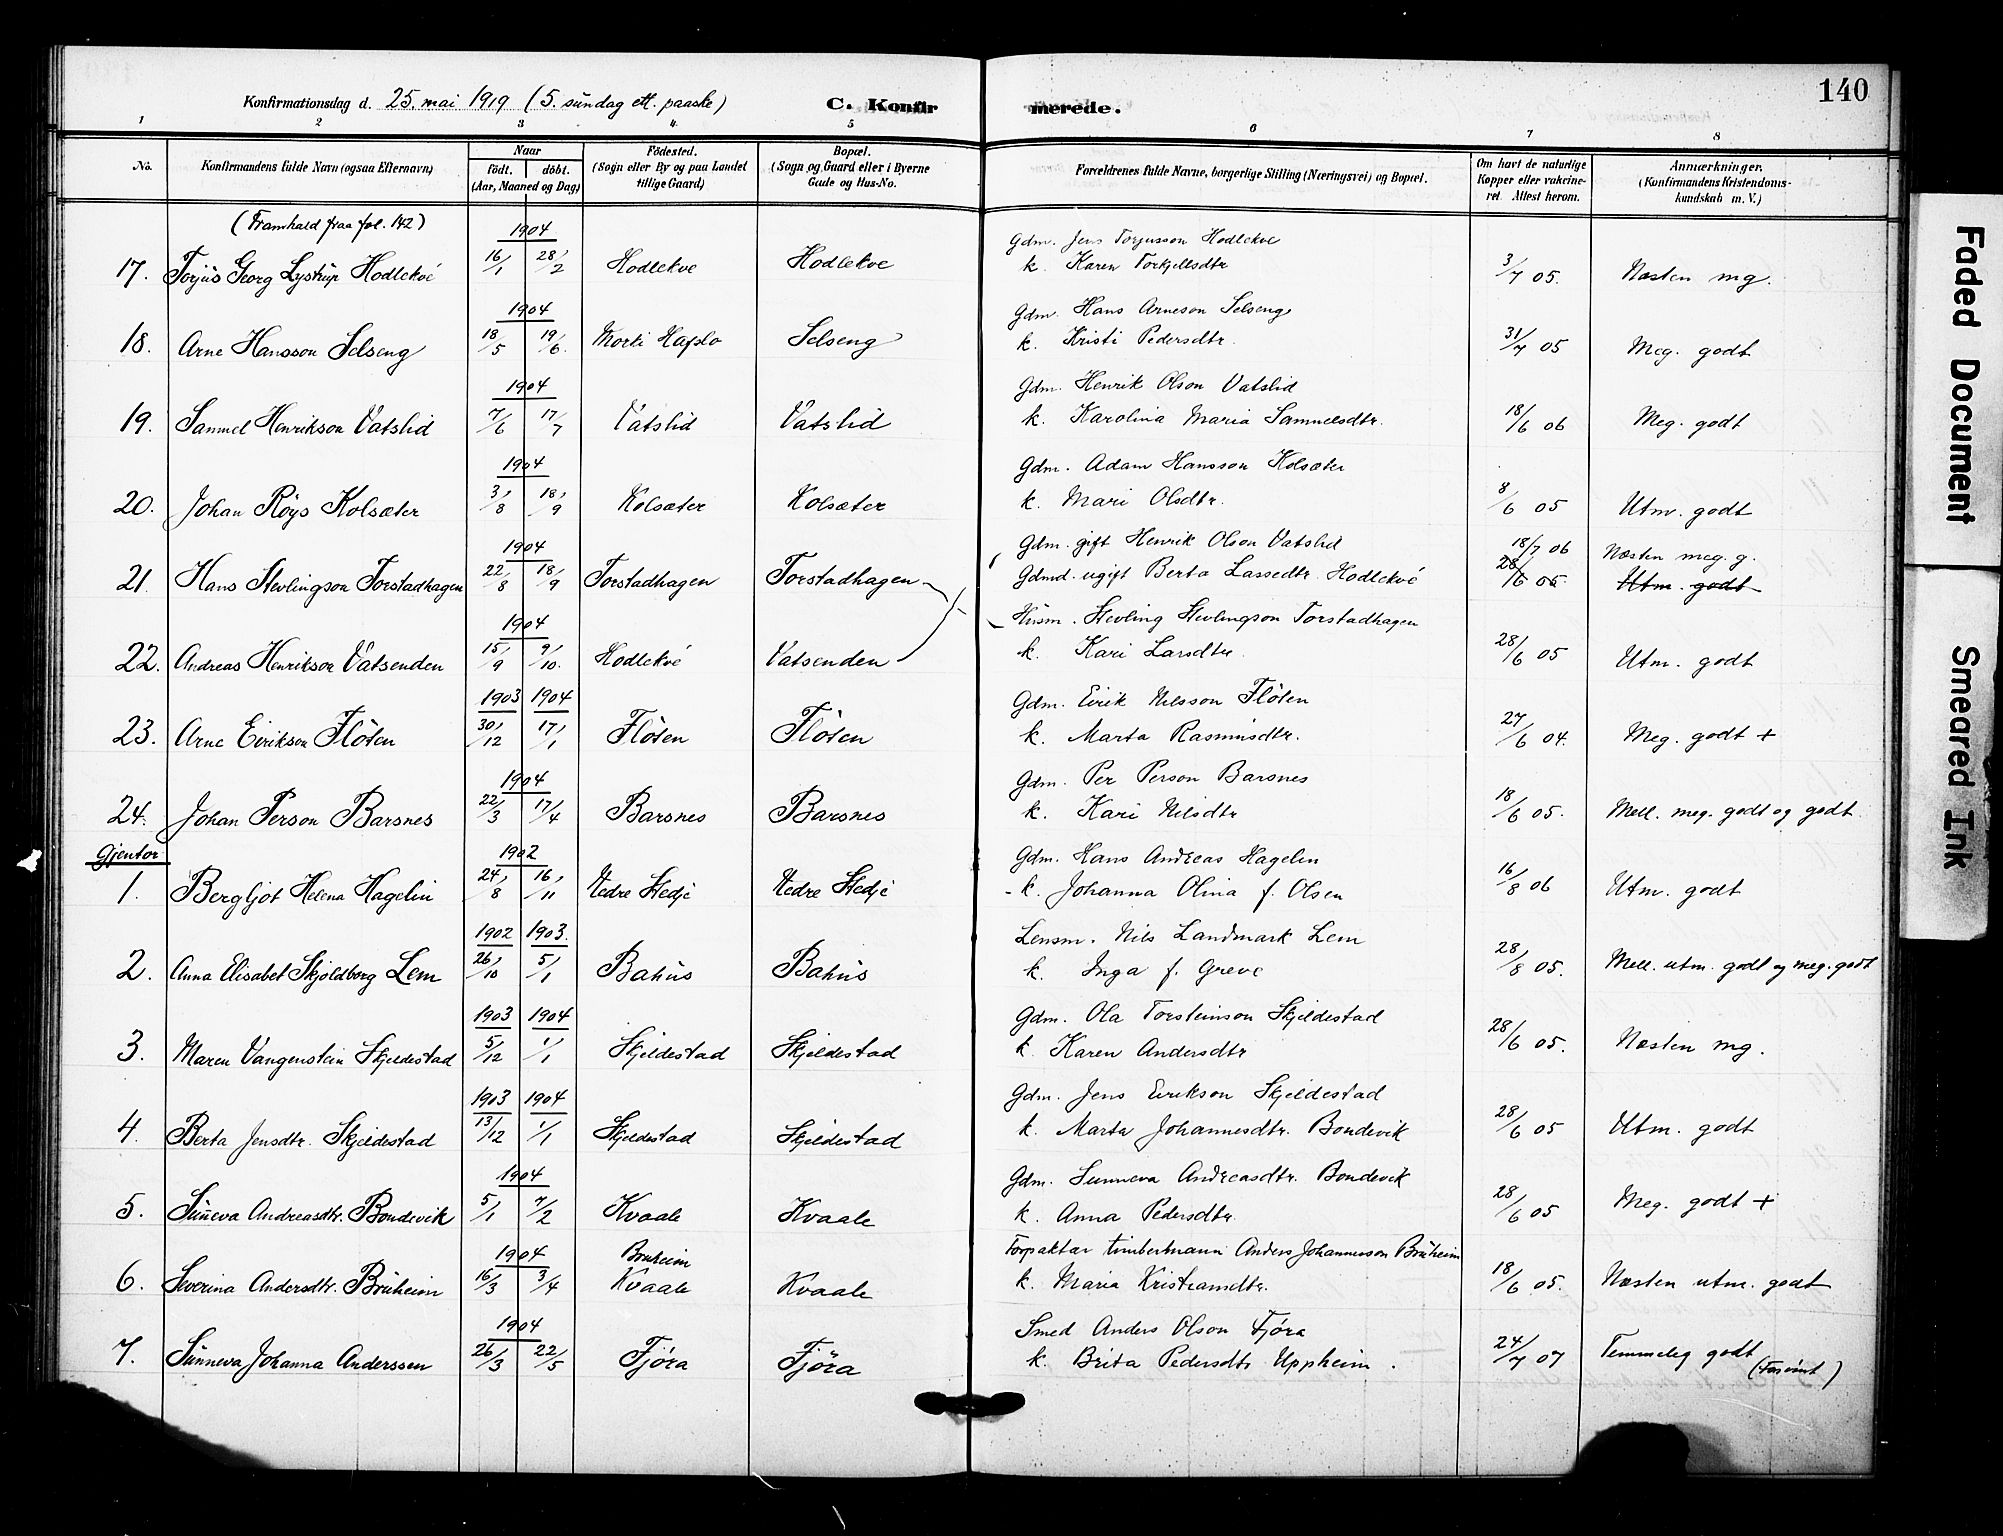 140
Konfirmationsdag d. 25. mai 1919 (5. sundag ett. paaske) C. Konfirmerede.
1 2 3 4 5 6 7 8
No. Konfirmandens fulde Navn (ogsaa Efternavn) Naar født. døbt. (Aar, Maaned og Dag) Fødested. (Sogn eller By og paa Landet tillige Gaard) Bopæl. (Sogn og Gaard eller i Byerne Gade og Hus-No. Forældrenes fulde Navne, borgerlige Stilling (Næringsvei) og Bopæl. Om havt de naturlige Kopper eller vakcineret. Attest herom. Anmærkninger. (Konfirmandens Kristendomskundskab m. V.)
(Framhald fraa fol. 142) 1904 Gdm. Jens Torjusson Hodlekve
17. Torjus Georg Lystrup Hodlekve 16/1 28/2 Hodlekve Hodlekve k. Karen Torkjellsdtr 3/7 05. Næsten mg.
1904 Gdm. Hans Arneson Selseng
18. Arne Hansson Selseng 18/5 19/6. Morki Hafslo Selseng k. Kristi Pedersdtr. 31/7 05 Meg. godt
1904 Gdm. Henrik Olson Vatslid
19. Samuel Henrikson Vatslid 7/6 17/7 Vatslid Vatslid k. Karolina Maria Samuelsdtr. 18/6 06 Meg. godt
1904 Gdm. Adam Hansson Kolsæter
20. Johan Röys Kolsæter 3/8 18/9 Kolsæter Kolsæter k. Mari Olsdtr. 8/6 05 Utm. godt
1904 Gdm. gift Henrik Olson Vatslid 18/7 06 Næsten meg. g.
21. Hans Stevlingson Torstadhagen 22/8 18/9 Torstadhagen Torstadhagen Gdmd. ugift Berta Lassedtr. Hodlekvé 28/6 05 Utm. godt
1904 Husm. Stevling Stevlingson Torstadhagen
22. Andreas Henrikson Vatsenden 15/9 9/10. Hodlekvé Vatsenden k. Kari Larsdtr. 28/6 05 Utm. godt
1903 1904 Gdm. Eirik Nilsson Flöten
23. Arne Eirikson Flöten 30/12 17/1 Flöten Flöten k. Marta Rasmusdtr. 27/6 04. Meg. godt +
1904 Gdm. Per Person Barsnes
24. Johan Person Barsnes 22/3 17/4 Barsnes Barsnes k. Kari Nilsdtr 18/6 05. Mell. meg. godt og godt
Gjentor 1902 Gdm. Hans Andreas Hagelin
1. Bergljot Helena Hagelin 24/8 16/11 Nedre Stedje Nedre Stedje k. Johanna Olina f. Olsen 16/8 06 Utm. godt
1902 1903. Lensm. Nils Landmark Lem
2. Anna Elisabet Skjoldborg Lem 26/10 5/1 Bahus Bahus k. Inga f. Greve 28/8 05. Mell. utm. godt og meg. godt
1903 1904 Gdm. Ola Torsteinson Skjeldestad
3. Maren Vangenstein Skjeldestad 5/12 1/1 Skjeldestad Skjeldestad k. Karen Andersdtr 28/6 05. Næsten mg.
1903 1904 Gdm. Jens Eirikson Skjeldestad
4. Berta Jensdtr. Skjeldestad 13/12 1/1 Skjeldestad Skjeldestad k. Marta Johannesdtr. Bondevik 28/6 05 Utm. godt
1904 Gdm. Sunneva Andreasdtr. Bondevik
5. Sunneva Andreasdtr. Bondevik 5/1 7/2 Kvaale Kvaale k. Anna Pedersdtr. 28/6 05 Meg. godt +
1904 Bruheim Forpaktar timbermann Anders Johannesson Bruheim
6. Severina Andersdtr. Bruheim 16/3 3/4 Kvaale Kvaale k. Maria Kristiansdtr. 18/6 05. Næsten utm. godt
1904 Smed Anders Olson Fjöra
7. Sunneva Johanna Anderssen 26/3 22/5 Fjöra Fjöra k. Brita Pedersdtr Uppheim. 24/7 07 Temmeleg godt
Faded Document
Smeared Ink